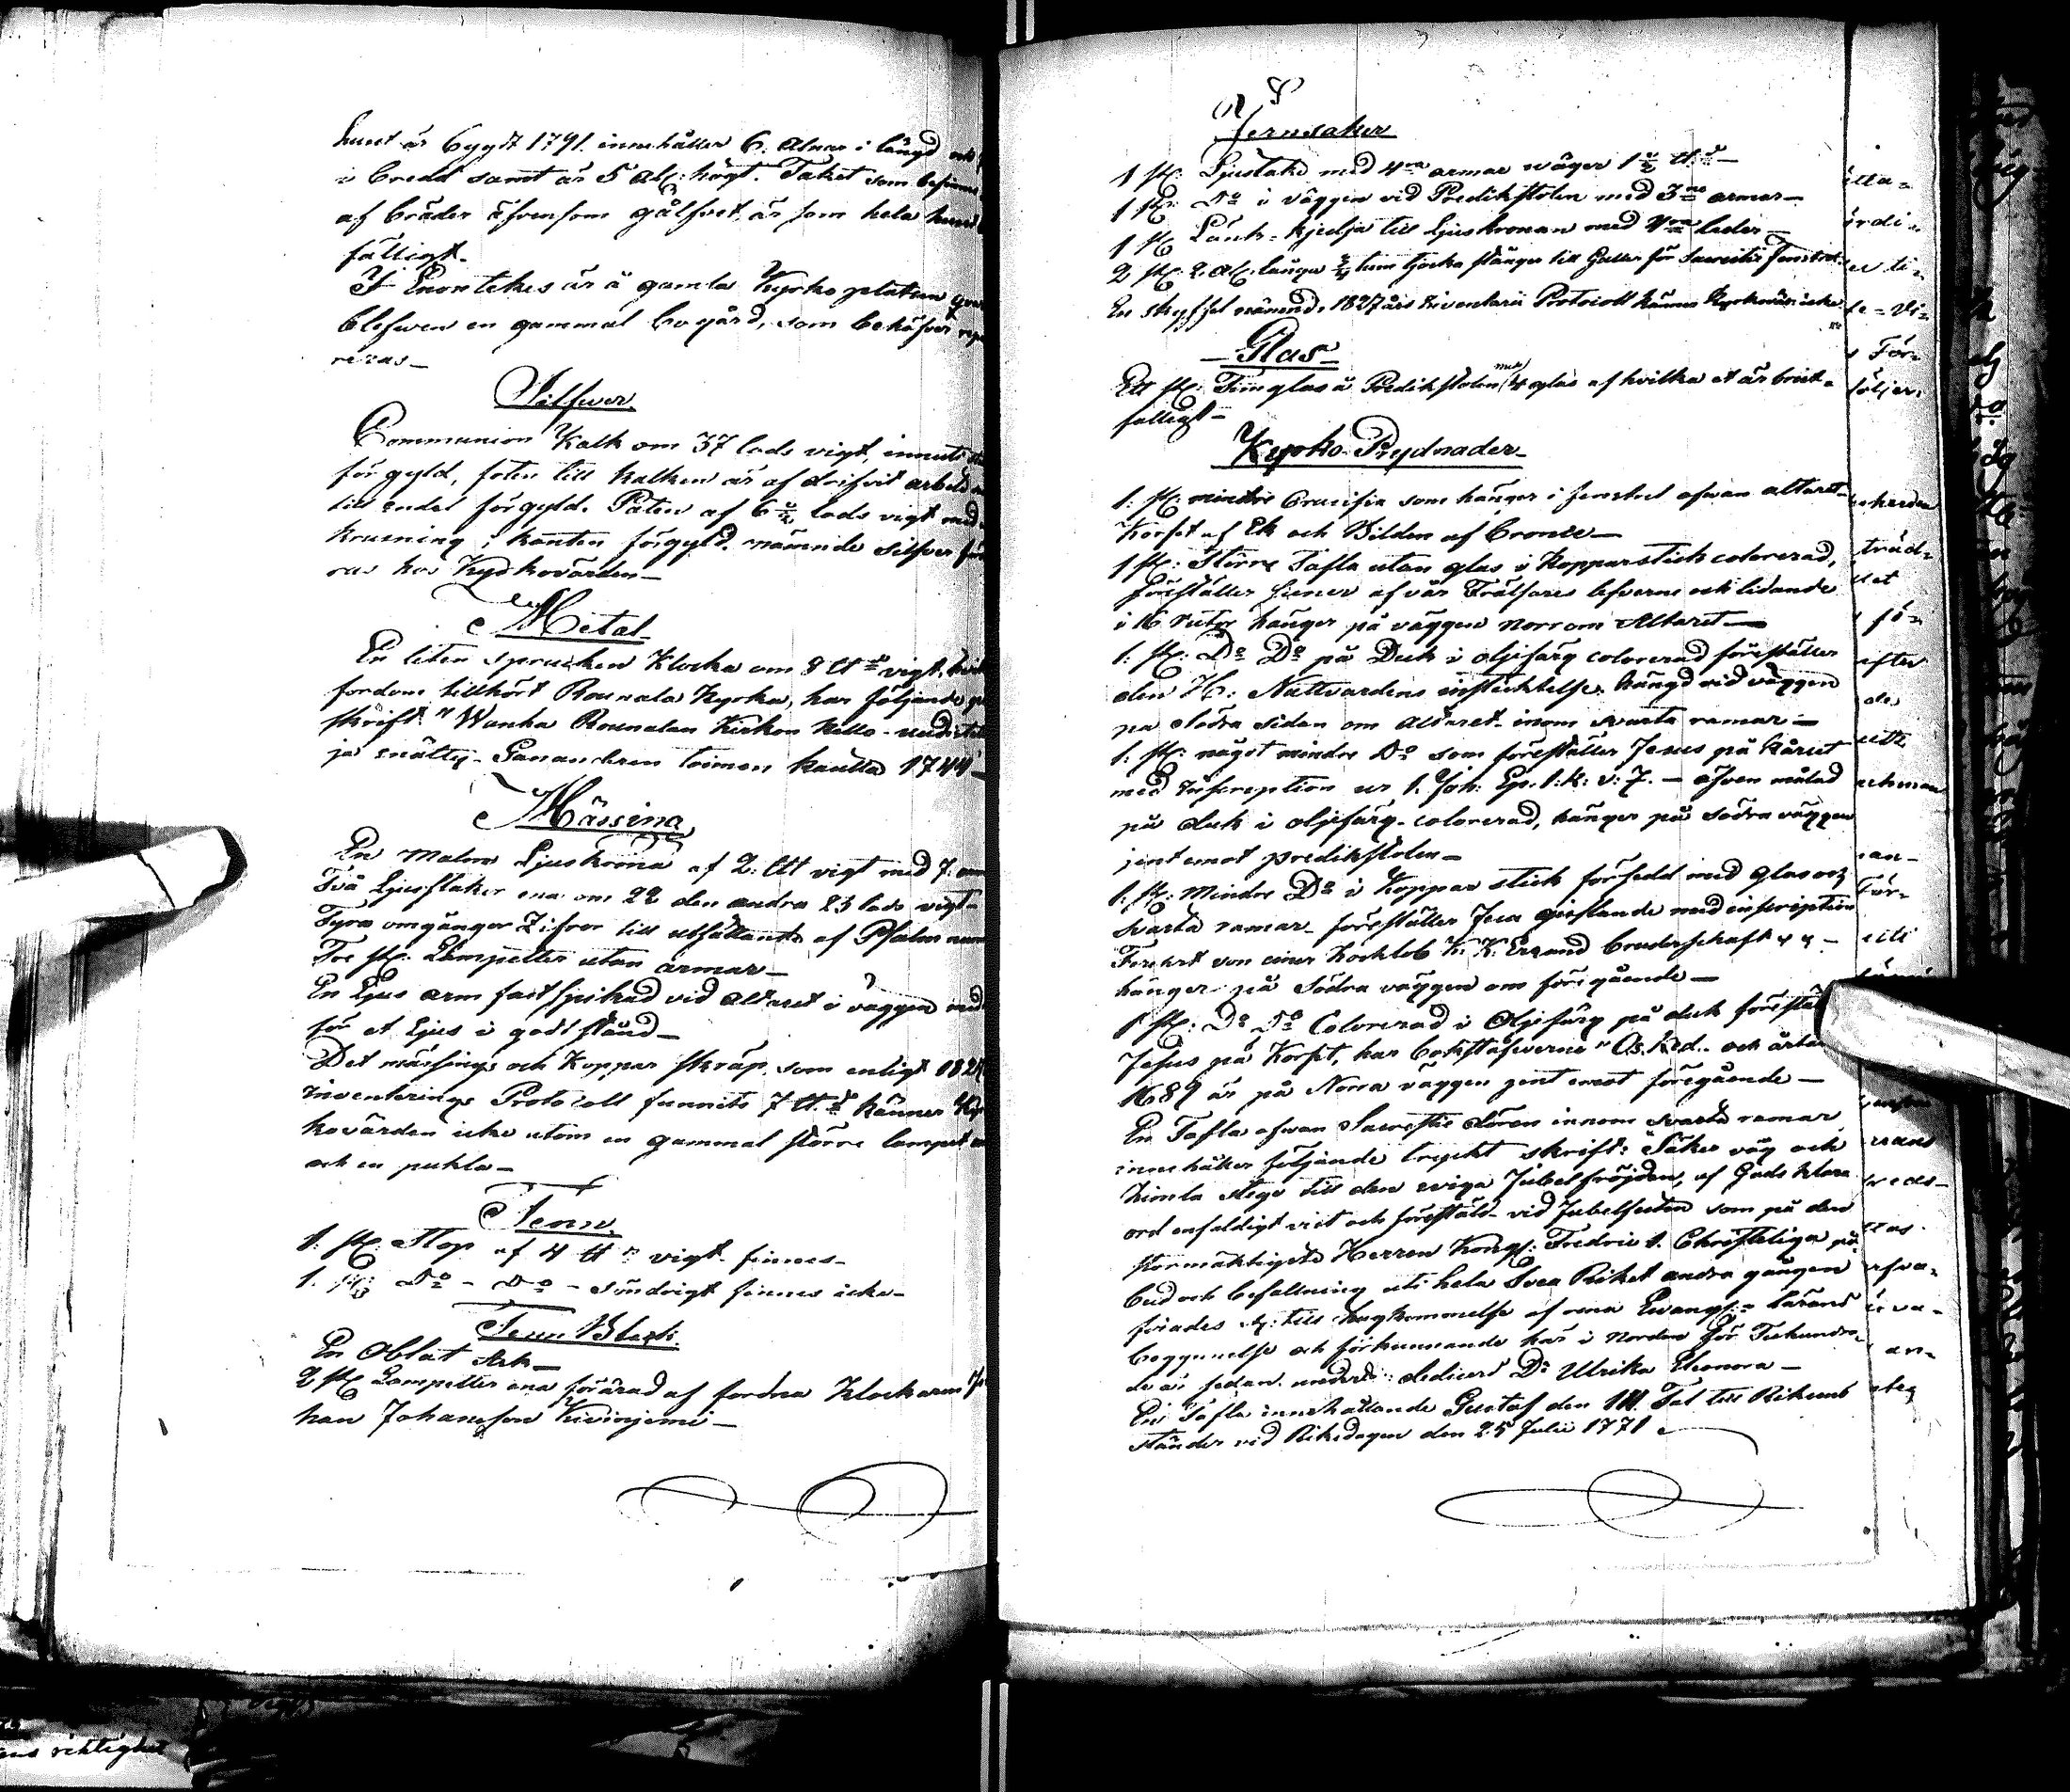 huset är bygdt 1791. innehåller 6. Alnar i längd och
i bredd samt är 5 Al: högt. Taket som befinnes
af bräder äfvensom gålfvet, är som hela huset
fälligt.
I Enontekis är å gamla Kyrko platsen qvar
blefwen en gammal bogård, som behöfver repa
reras
Silfwer
Communion Kalk om 37 lods vigt, innuti
förgyld, foten till kalken är af drifvit arbete
till endel förgyld. Paten af 6 1/2 lods vigt med
krusning i kanten förgyld. nämnde silfver förva
ras hos Kyrkovärden
Metal
En liten sprucken Klocka om 8 ℔ vigt,
fordom tillhört Rounala Kyrka, har följande
skrift "Wanha Rounalan Kirkon Kello - uudistet
ja enätty - Sananderin toimen kautta 1744"
Mässing
En malm Ljuskrona af 2: L℔ vigt med 7: arm
Två Ljusstakar ena om 22 den andra 23 lods vigt
Fyra omgångar Zifror till utsättande af Psalm num
Tre st: Lampetter utan armar
En Ljus arm fastspikad vid Altaret i väggen med
för et Ljus i godt stånd
Det mässings och Koppar skrap, som enligt 1827
Inventerings Protocoll funnits 7 ℔ känner Kyr
kovärden icke utom en gammal större lampet
och en pukla
Tenn
1: st: Stop af 4 ℔ vigt finnes
1. st: Do - Do - söndrigt finnes icke
Tenn Bleck
En Oblat Ask
2 st: Lampetter ena förärad af fordna Klockaren
han Johansson Kivinjemi
Jernsaker
1 st: Ljustake med 4ra armar wäger 1 1/2 ℔
1 st: Do i väggen vid Predikstolen med 3ne armar
1 st: Länk-kjedja till Ljuskronan med 4ra leder
2 st: 2. Al: långa 3/4 tum tjocka stänger till Galler för Sacristie fenstret
En skyffel nämnd i 1827 års Inventarii Protocoll känner Kyrkovärd: icke
Glas
Ett st: Timglas å Predikstolen med 4 glas af hvilka et är bräck-
fälligt
Kyrko-Prydnader
1: st: mindre Crucifix som hänger i fenstret ofwan altaret
Korset af Ek och Bilden af Bronce
1 st: Större Tafla utan glas i Kopparstick colorerad,
föreställer Scener af vår Frälsares lefverne och lidande
i 16 rutor hänger på väggen norrom Altaret
1: st: Do Do på Duk i oljefärg colorerad föreställer
den H: Nattvardens instichtelse hängd vid väggen
på södra sidan om altaret inom svarta ramar
1: st: något mindre Do som föreställer Jesus på Kårset
med inscription ur 1. Joh: Ep. 1: k: v: 7. - äfven målad
på duk i oljefärg-colorerad, hänger på södra väggen
jent emot predikstolen
1. st: Mindre Do i Koppar stick försedd med Glas och
Svarta ramar föreställer Jesu gisslande med inscription
Forehrt von einer Hochlob K. K. Erzand bruderschaft
hänger på Södra väggen om föregående
1 st: Do Do Colorerad i Oljefärg på duk förestäl
Jesus på Korset, har bokstäfverne "Os. k. d.. och årtal
1689 är på Norra väggen jent emot föregående
En Tafla ofwan Sacrestie dören innom svarta ramar
innehåller följande tryckt skrift: Säker väg och
himla stege till den eviga Jubelfröjden, af Guds klara
ord enfaldigt vist och förestäld vid Jubelfesten som på den
stormäktigste Herren Kongs: Fredric 1. Christeliga på
bud och befallning uti hela Svea Riket andra gången
firades till hugkommelse af rena Evangl: lärans
begynnelse och förkunnande här i Norden för Tvåhundra
de år sedan. underd: dedicerd Dr Ulrika Eleonora
En Tafla innehållande Gustaf den III. Tal till Rikens
ständer vid Riksdagen den 25 Julii 1771